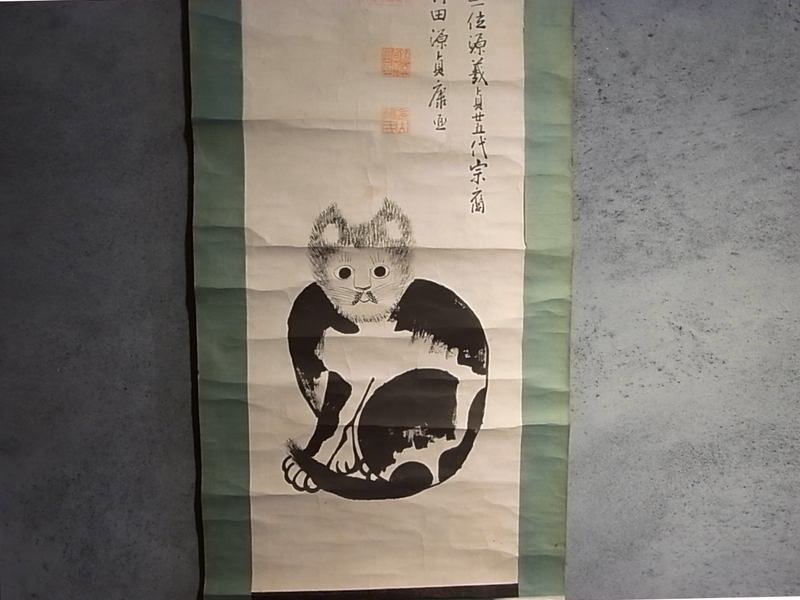 位源義貞廿五代宗裔
田源貞康画